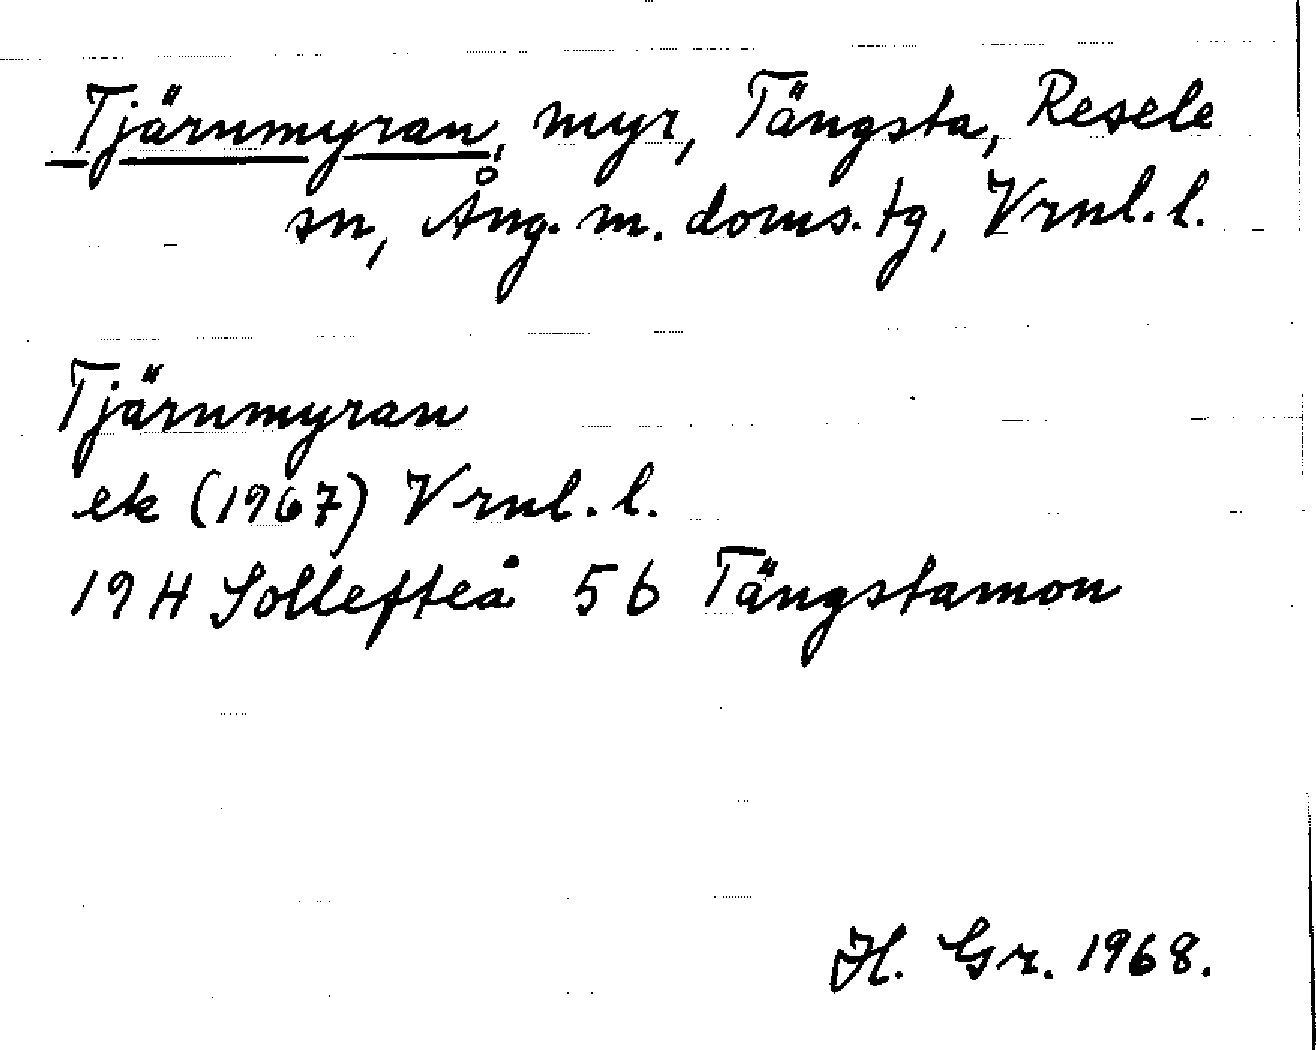 Tjärnmyran, myr, Tängsta, Resele
sn, Ång. m. doms. tg, Vrnl. l.
Tjärnmyran
ek (1967) Vrnl. l.
19 H Sollefteå 5 b Tängstamon
H. Gr. 1968.